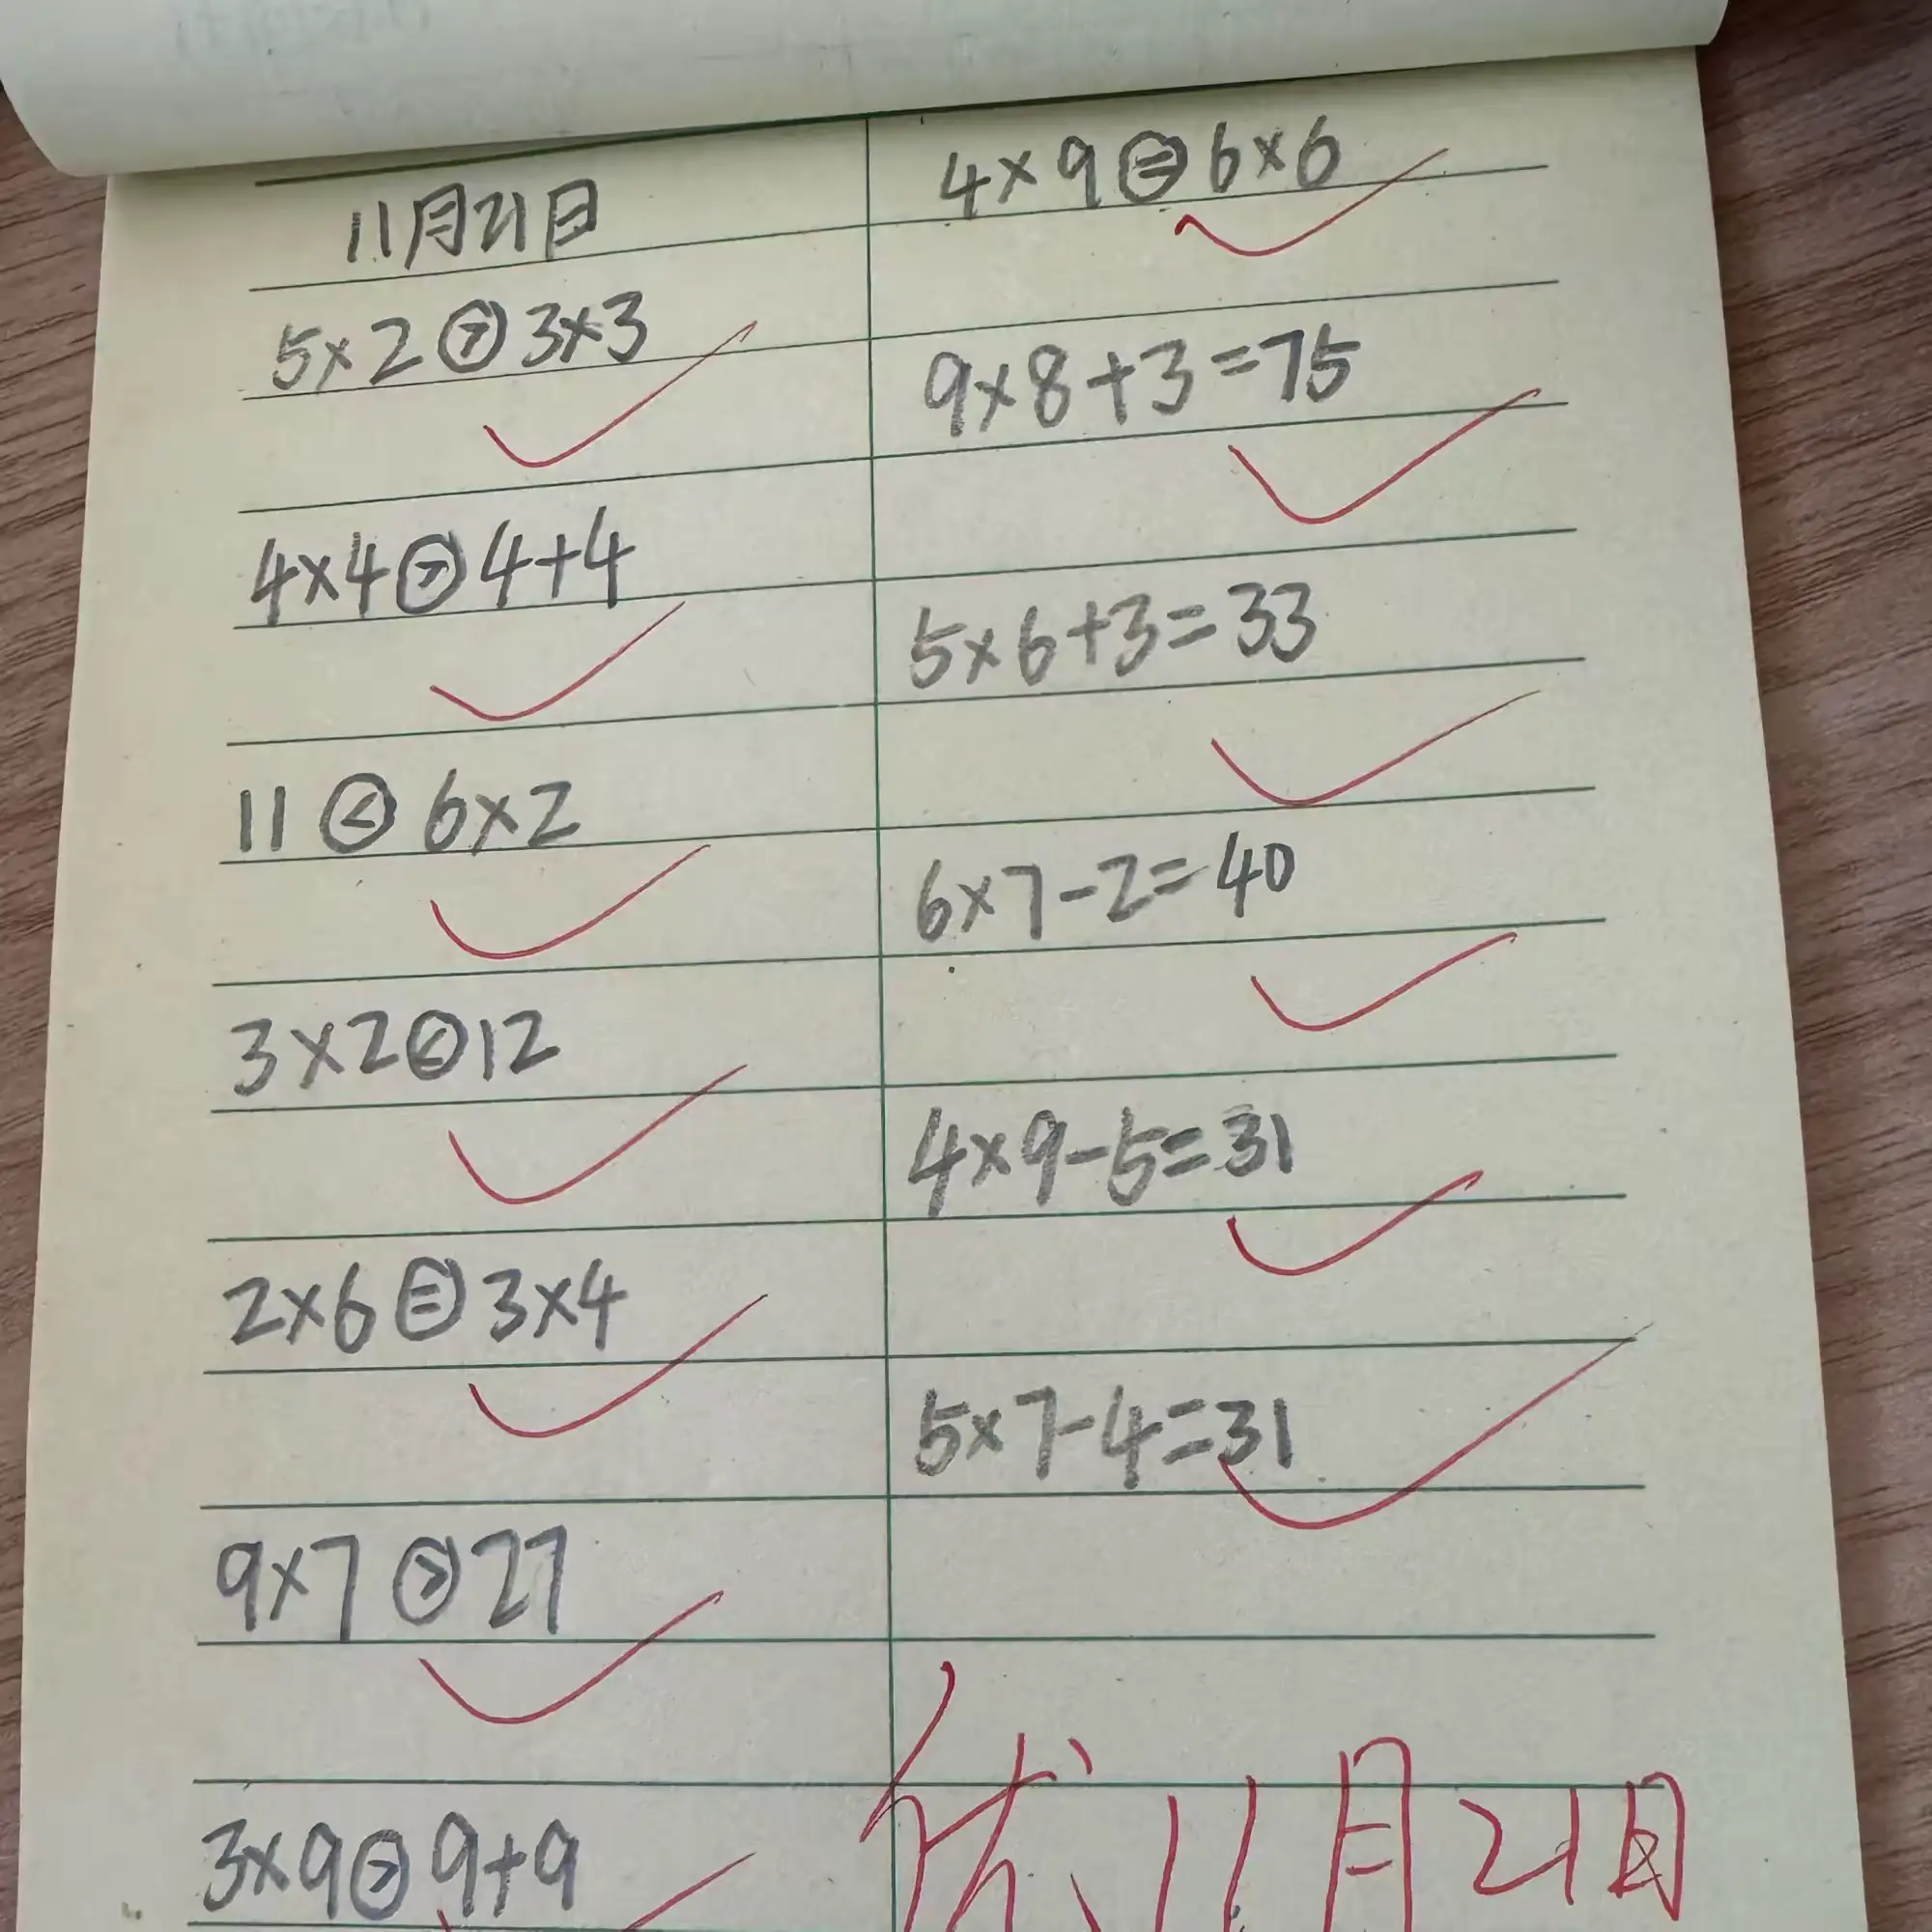 11月21日
5×2>3×3
4×4>4+4
11<6×2
3×2<12
2×6=3×4
9×7>27
3×9>9+9
4×9=6×6
9×8+3=75
5×6+3=33
6×7-2=40
4×9-5=31
5×7-4=31
优 11月21日